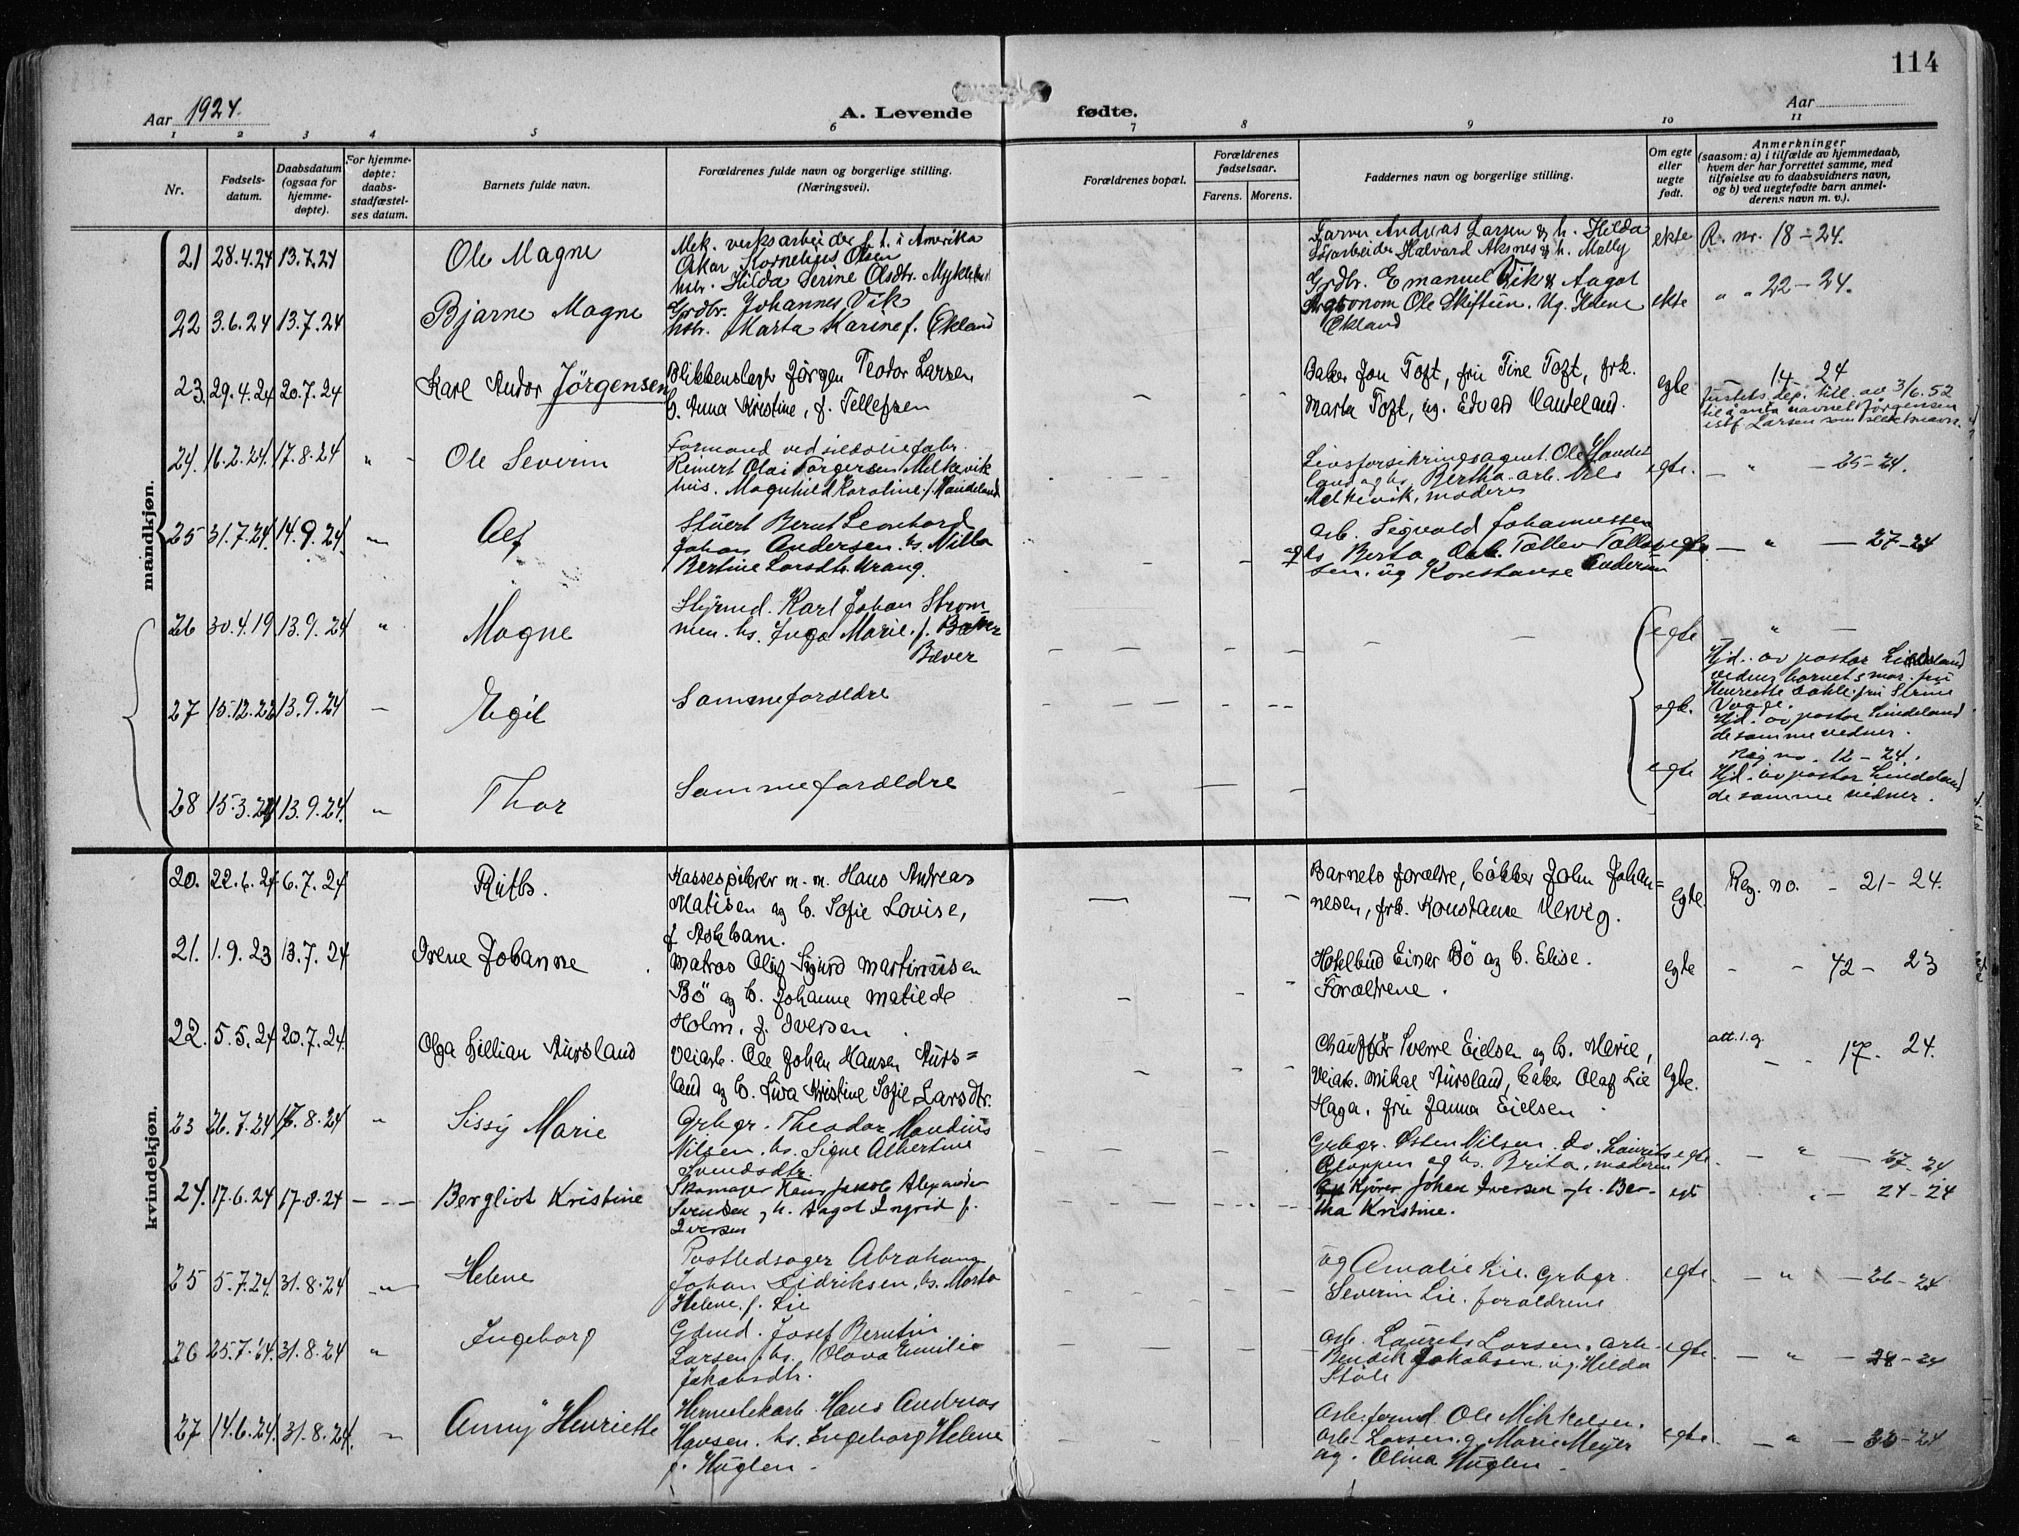 114
Aar 1924.
A. Levende fødte.
Aar
1 2 3 4 5 6 7 8 9 10 11
Nr.
Fødsels-
datum.
Daabsdatum
(ogsaa for
hjemme-
døpte).
For hjemme-
døpte:
daabs-
stadfæstel-
ses datum.
Barnets fulde navn.
Forældrenes fulde navn og borgerlige stilling.
(Næringsvei).
Forældrenes bopæl.
Forældrenes
fødselsaar.
Farens. Morens.
Faddernes navn og borgerlige stilling.
Om egte
eller
uegte
født.
Anmerkninger
(saasom: a) i tilfælde av hjemmedaab,
hvem der har forrettet samme, med
tilføielse av to daabsvidners navn,
og b) ved uegtefødte barn anmel-
derens navn m. v.).
mandkjøn.
21 28.4.24 13.7.24 Ole Magne
Mek. verksarbeider f. t. i Amerika
Oskar Kornelius Olsen
hstr. Hilda Serine Olsdtr. Myklebust
Farver Andreas Larsen & h. Hilda
Sjøarbeider Halvard Aksnes & h. Mally
ekte R. nr. 18-24.
22 3.6.24 13.7.24 Bjarne Magne
Grdbr. Johannes Vik
hstr. Marta Karine f. Økland
Grdbr. Emanuel Vik & Aagot
Agronom Ole Skiftun. Ug. Helene
Økland
ekte " " 22-24.
23. 29.4.24 20.7.24 Karl Andor Jörgensen
Blikkenslager Jørgen Teodor Larsen
h. Anna Kristine, f. Tellefsen
Baker Jon Toft, fru Tine Toft, frk.
Marta Toft, ug. Edvard Haudeland.
egte 14-24
Justets dep. till. av 3/6.52
til å anta navnet Jørgensen
istf Larsen som slektsnavn.
24. 16.2.24. 17.8.24 " Ole Severin
Formand ved sildoliefabr.
Reinert Olai Torgersen Melkevik
hus. Magnhild Karoline f. Haudeland
Livsforsikringsagent Ole Haudeland
og hs. Bertha. arb. Nils
Melkevik, moderen
egte. " 25-24.
25 31.7.24. 14.9.24. " Alf
Stuert Bernt Leonhard
Johan Andersen. hs. Milla
Bertine Larsdtr. Vrang.
Arb. Sigvald Johannessen
og hs Berta. Arb. Tollev Tollev-
sen. ug Konstanse Andersen
egte. " 27-24
26 30.4.19 13.9.24 " Magne
Styrmd. Karl Johan Strom-
men. hs. Inga Marie. f. Bæver
Bæver
egte "
Hjd. av pastor Lindeland
vidner barnets mor. fru
Henriette Dahle. fru Stine
Vaage.
27 15.12.22 13.9.24 Egil
Samme forældre
egte.
Hjd. av pastor Lindeland
de samme vidner.
28 15.3.24 13.9.24. " Thor
Samme forældre
egte
Reg no. 12-24.
Hjd. av pastor Lindeland
de samme vidner.
kvindekjøn.
20. 22.6.24 6.7.24 Ruth.
Kassespikrer m. m. Hans Andreas
Matisen og h. Sofie Lovise,
f Askham.
Barnets forældre, bökker John Johan=
nesen, frk. Konstanse Nervig.
egte. Reg. no. - 21-24.
21. 1.9.23 13.7.24 Irene Johanne
Matros Oluf Sigurd Martinusen
Bö og h. Johanne Matilde
Holm, f. Iversen.
Hotelbud Einar Bö og h. Elise.
Forældrene.
egte - - 42-23
22. 5.5.24 20.7.24 Olga Lillian Aursland
Veiarb. Ole Johan Hansen Aurs=
land og h. Lina Kristine Sofie Larsdtr.
Chauffør Sverre Eielsen og h. Marie,
Veiarb. Mikal Aursland, baker Olaf Lie
Haga, fru Janna Eielsen.
egte. att. 1. g. - - 17-24.
23 26.7.24 17.8.24 " Sissy Marie
Grbgr. Theodor Mandius
Nilsen. hs. Signe Albertine
Svendsdtr.
Grbgr. Østen Nilsen. Do. Lauritz
Gloppen og hs. Brita, moderen
egte. " 27-24
24. 17.6.24 17.8.24 Bergliot Kristine
Skomager Hans Jakob Alexander
Svendsen og h. Aagot Ingrid f.
Iversen
Kjører Johan Iversen og h. Ber-
tha Kristine.
egte " 24-24
25 5.7.24. 31.8.24 " Helene
Postledsager Abraham
Johan Didriksen. hs. Marta
Helene. f. Lie
Ug Amalie Lie. Grbgr.
Severin Lie. forældrene
egte. " 26-24
26 25.7.24. 31.8.24 " Ingeborg
Gdmd. Josef Berntin
Larsen. hs. Olava Emilie
Jakobsdtr.
Arb. Laurits Larsen. Arb.
Bendik Jakobsen. ug. Hilda
Stole
egte. " 28-24
27 14.6.24. 31.8.24. " Anny Henriette
Hermetikarb. Hans Andreas
Hansen. hs. Ingeborg Helene
f. Huglen.
Arb.formd. Ole Mikkelsen.
Arb. Larsen. g. Marie Meyer
ug. Olina Huglen.
egte. " 33-24